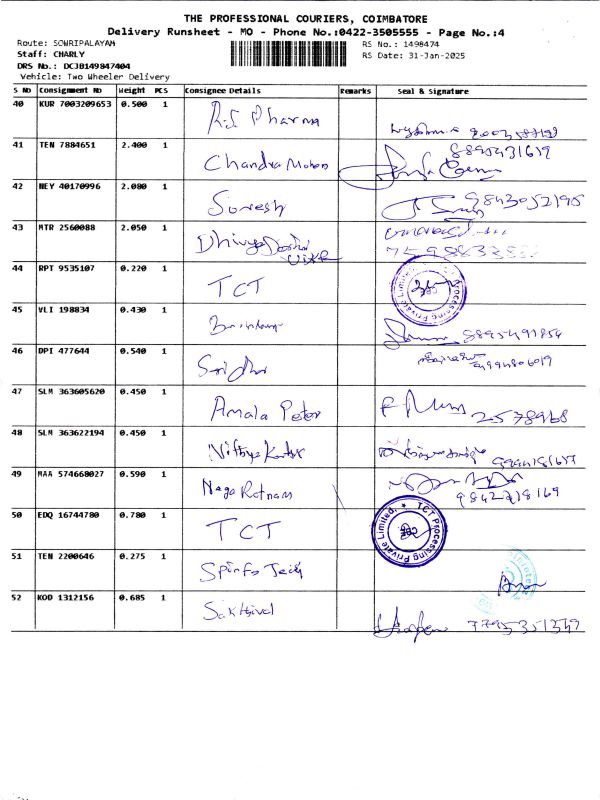 THE PROFESSIONAL COURIERS, COIMBATORE
Delivery Runsheet - MO - Phone No.:0422-3505555 - Page No.:4
Route: SOWRIPALAYAM
RS No.: 1498474
Staff: CHARLY
RS Date: 31-Jan-2025
DRS No.: DCJB149847404
Vehicle: Two Wheeler Delivery
S No Consignment No Weight PCS Consignee Details Remarks Seal & Signature
40 KUR 7003209653 0.500 1 R.S Pharma
41 TEN 7884651 2.400 1 Chandra Mohan 8895431619
42 NEY 40170996 2.080 1 Suresh 9843052195
43 MTR 2560088 2.050 1 Dhivya
44 RPT 9535107 0.220 1 TCT Processing Private Limited
45 VLI 198834 0.430 1 8895491854
46 DPI 477644 0.540 1 Sridhar
47 SLM 363605620 0.450 1 Amala Peter 2578968
48 SLM 363622194 0.450 1 Nithya
49 MAA 574668027 0.590 1 Naga Ratnam 9842718169
50 EDQ 16744780 0.780 1 TCT TCT Processing Private Limited. CBE
51 TEN 2200646 0.275 1 Spinfo Tech
52 KOD 1312156 0.685 1 Sakthivel 7795351359